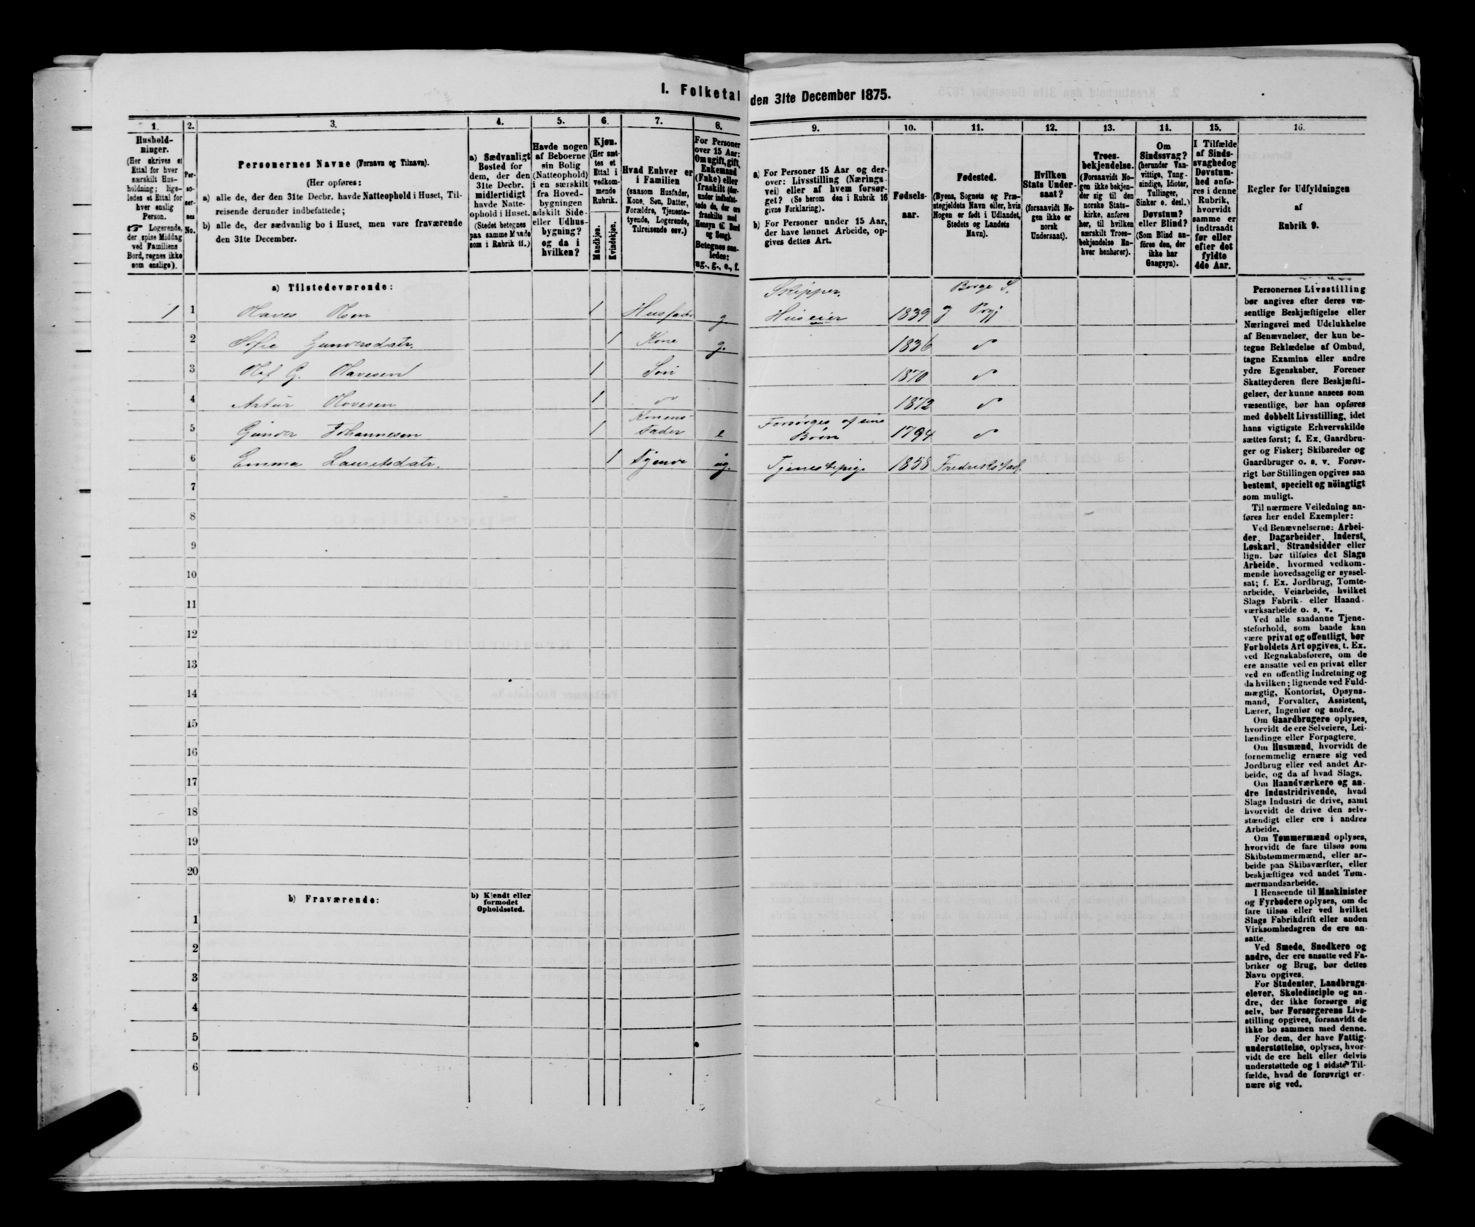 I. Folketal den 31te December 1875.
1. 2. 3. 4. 5. 6. 7. 8. 9. 10. 11. 12. 13. 14. 15. 16.
Hushold-
ninger.
(Her skrives et
Ettal for hver
særskilt Hus-
holdning; lige-
ledes et Ettal for
hver enslig
Person.
☞ Logerende,
der spise Middag
ved Familiens
Bord, regnes ikke
som enslige).
Per-
so-
ner-
nes
No.
Personernes Navne (Fornavn og Tilnavn).
(Her opføres:
a) alle de, der den 31te Decbr. havde Natteophold i Huset, Til-
reisende derunder indbefattede;
b) alle de, der sædvanlig bo i Huset, men vare fraværende
den 31te December.
a) Sædvanligt
Bosted for
dem, der den
31te Decbr.
midlertidigt
havde Natte-
ophold i Huset.
(Stedet betegnes
paa samme Maade
som i Rubrik 11.)
Havde nogen
af Beboerne
sin Bolig
(Natteophold)
i en særskilt
fra Hoved-
bygningen
adskilt Side-
eller Udhus-
bygning?
og da i
hvilken?
Kjøn.
(Her sæt-
tes et
Ettal i
vedkom-
mende
Rubrik.
Mandkjøn.
Kvindekjøn.
Hvad Enhver er
i Familien
(saasom Husfader,
Kone, Søn, Datter,
Forældre, Tjeneste-
tyende, Logerende,
Tilreisende osv.)
For Personer
over 15 Aar:
Om ugift, gift,
Enkemand
(Enke) eller
fraskilt
Betegnes saa-
ledes:
ug., g., e., f.
a) For Personer 15 Aar og der-
over: Livsstilling (Nærings-
vei) eller af hvem forsør-
get? (Se herom den i Rubrik 16
givne Forklaring).
b) For Personer under 15 Aar,
der have lønnet Arbeide, op-
gives dettes Art.
Fødsels-
aar.
Fødested.
(Byens, Sognets og Præ-
stegjeldets Navn eller, hvis
Nogen er født i Udlandet,
Stedets og Landets
Navn).
Hvilken
Stats Under-
saat?
(forsaavidt No-
gen ikke er
norsk
Undersaat).
Troes-
bekjendelse.
(Forsaavidt No-
gen ikke bekjen-
der sig til den
norske Stats-
kirke, anføres
her, til hvilken
særskilt Troes-
bekjendelse En-
hver henhører).
Om
Sindssvag?
(herunder Van-
vittige, Tung-
sindige, Idioter,
Tullinger,
Sinker o. desl.)
Døvstum?
eller Blind?
(Som Blind an-
føres den, der
ikke har
Gangsyn).
I Tilfælde
af Sinds-
svaghed og
Døvstum-
hed anfø-
res i denne
Rubrik,
hvorvidt
samme er
indtraadt
før eller
efter det
fyldte
4de Aar.
Regler for Udfyldningen
af
Rubrik 9.
a) Tilstedeværende:
1 1 Olsen 1 g Skipper. Huseier 1839
2 Sofie Gundersdatr. 1 Kone g. 1836 〃
3 1 Søn 1870 〃
4 1 〃 〃
5 Gunder Johannesen 1 Konens Fader e Forsørges af sine Børn 1794 〃
6 Emma Lauritsdatr. 1 Tjener ug. Tjenestepige 1858 Fredrikstad.
7
8
9
10
11
12
13
14
15
16
17
18
19
20
b) Fraværende:
b) Kjendt eller
formodet
Opholdssted.
1
2
3
4
5
6
Personernes Livsstilling
bør angives efter deres væ-
sentlige Beskjæftigelse eller
Næringsvei med Udelukkelse
af Benævnelser, der kun be-
tegne Bekladelse af Ombud,
tagne Examina eller andre
ydre Egenskaber. Forener
Skatteyderen flere Beskjæfti-
gelser, der kunne ansees som
væsentlige, bør han opføres
med dobbelt Livsstilling, idet
hans vigtigste Erhvervskilde
sættes først; f. Ex. Gaardbru-
ger og Fisker; Skibsreder og
Gaardbruger o. s. v. Forøv-
rigt bør Stillingen opgives saa
bestemt, specielt og nøiagtigt
som muligt.
Til nærmere Veiledning an-
føres her endel Exempler:
Ved Benævnelserne: Arbei-
der, Dagarbeider, Inderst,
Løskarl, Strandsidder eller
lign. bør tilføies det Slags
Arbeide, hvormed vedkom-
mende hovedsagelig er syssel-
sat; f. Ex. Jordbrug, Tomte-
arbeide, Veiarbeide, hvilket
Slags Fabrik- eller Haand-
værksarbeide o. s. v.
Ved alle saadanne Tjene-
steforhold, som baade kan
være privat og offentligt, bør
Forholdets Art opgives, t. Ex.
ved Regnskabsførere, om de
ere ansatte ved en privat eller
ved en offentlig Indretning og
da hvilken; lignende ved Fuld-
mægtig, Kontorist, Opsyns-
mand, Forvalter, Assistent,
Lærer, Ingeniør og andre.
Om Gaardbrugere oplyses,
hvorvidt de ere Selveiere, Lei-
lændinge eller Forpagtere.
Om Husmænd, hvorvidt de
fornemmelig ernære sig ved
Jordbrug eller ved andet Ar-
beide, og da af hvad Slags.
Om Haandværkere og an-
dre Industridrivende, hvad
Slags Industri de drive, samt
hvorvidt de drive den selv-
stændigt eller ere i andres
Arbeide.
Om Tømmermænd oplyses,
hvorvidt de fare tilsøs som
Skibstømmermænd, eller ar-
beide paa Skibsværfter, eller
beskjæftiges ved andet Tøm-
mermandsarbeide.
I Henseende til Maskinister
og Fyrbødere oplyses, om de
fare tilsøs eller ved hvilket
Slags Fabrikdrift eller anden
Virksomhedsgren de ere an-
satte.
Ved Smede, Snedkere og
andre, der ere ansatte ved Fa-
briker og Brug, bør dettes
Navn opgives.
For Studenter, Landbrugs-
elever, Skoledisciple og an-
dre, der ikke forsørge sig
selv, bør Forsørgerens Livs-
stilling opgives, forsaavidt de
ikke bo sammen med denne.
For dem, der have Fattig-
understøttelse, oplyses, hvor-
vidt de ere helt eller delvis
understøttede og i sidste Til-
fælde, hvad de forøvrigt er-
nære sig ved.